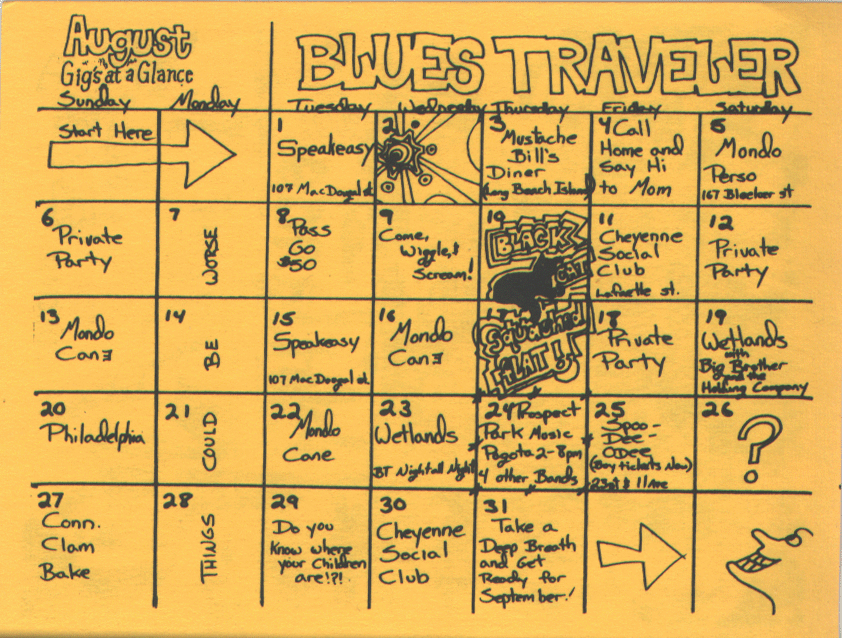 August
Gigs at a Glance
BLUES TRAVELER
Sunday Monday Tuesday Wednesday Thursday Friday Saturday
Start Here
1
Speakeasy
107 MacDougal st
2
3
Mustache
Bill's
Diner
(Long Beach Island)
4 Call
Home and
Say Hi
to Mom
5
Mondo
Perso
167 Bleeker st
6
Private
Party
7
WORSE
8
Pass
Go
$50
9
Come,
Wiggle, &
Scream!
10
BLACK
CAT
11
Cheyenne
Social
Club
Lafayette st.
12
Private
Party
13
Mondo
Cane
14
BE
15
Speakeasy
107 MacDougal st.
16
Mondo
Cane
17
Squashed
FLAT!!
18
Private
Party
19
Wetlands
with
Big Brother
and the
Holding Company
20
Philadelphia
21
COULD
22
Mondo
Cane
23
Wetlands
BT Night all Night
24 Prospect
Park Music
Pagota 2-8pm
4 other Bands
25
Spoo-
Dee-
ODee
(Buy tickets Now)
23 st & 11 Ave
26
?
27
Conn.
Clam
Bake
28
THINGS
29
Do you
Know where
your Children
are!?!
30
Cheyenne
Social
Club
31
Take a
Deep Breath
and Get
Ready for
September!